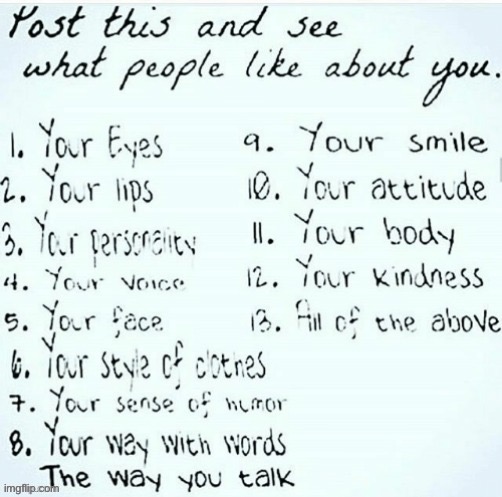 Post this and see
what people like about you.
1. Your Eyes
2. Your lips
3. Your personality
4. Your voice
5. Your face
6. Your style of clothes
7. Your sense of humor
8. Your way with words
The way you talk
9. Your smile
10. Your attitude
11. Your body
12. Your kindness
13. All of the above
imgflip.com